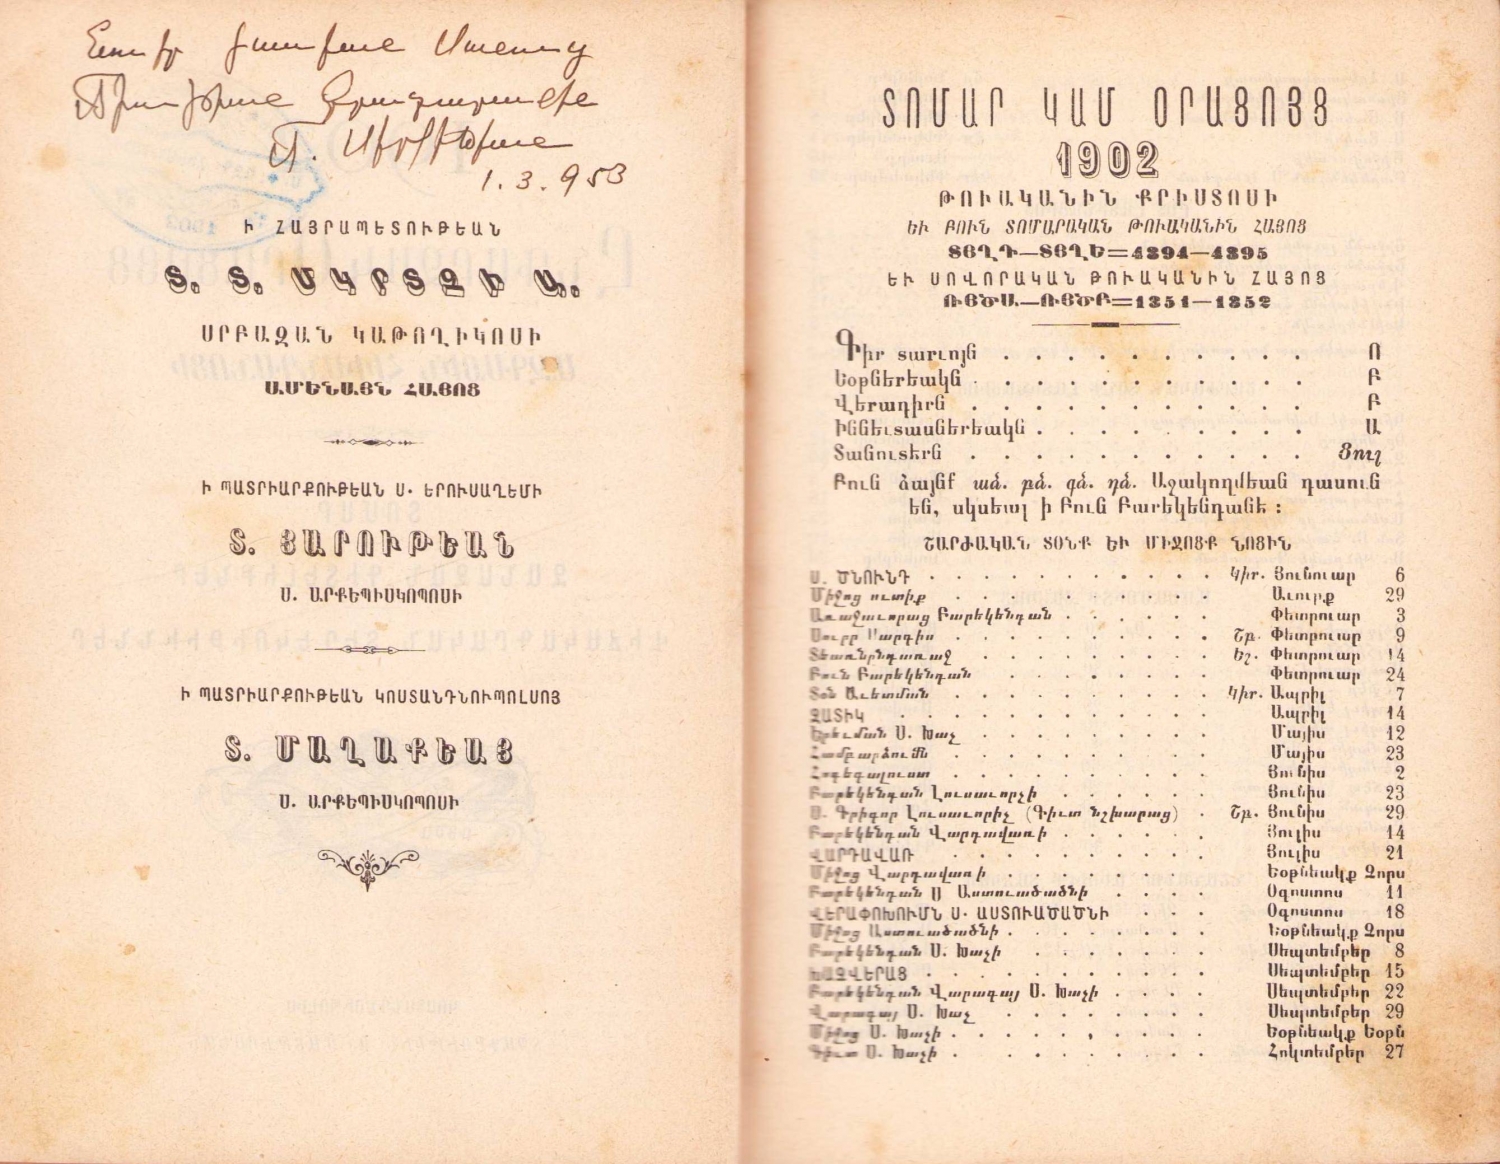 1.3.953
Ի ՀԱՅՐԱՊԵՏՈՒԹԵԱՆ
Տ. Տ. ՄԿՐՏՉԻ Ա.
ՍՐԲԱԶԱՆ ԿԱԹՈՂԻԿՈՍԻ
ԱՄԵՆԱՅՆ ՀԱՅՈՑ
Ի ՊԱՏՐԻԱՐՔՈՒԹԵԱՆ Ս. ԵՐՈՒՍԱՂԵՄԻ
Տ. ՅԱՐՈՒԹԵԱՆ
Ս. ԱՐՔԵՊԻՍԿՈՊՈՍԻ
Ի ՊԱՏՐԻԱՐՔՈՒԹԵԱՆ ԿՈՍՏԱՆԴՆՈՒՊՈԼՍՈՅ
Տ. ՄԱՂԱՔԵԱՅ
Ս. ԱՐՔԵՊԻՍԿՈՊՈՍԻ
ՏՈՄԱՐ ԿԱՄ ՕՐԱՑՈՅՑ
1902
ԹՈՒԱԿԱՆԻՆ ՔՐԻՍՏՈՍԻ
ԵՒ ԲՈՒՆ ՏՈՄԱՐԱԿԱՆ ԹՈՒԱԿԱՆԻՆ ՀԱՅՈՑ
ՏՅՂԴ—ՏՅՂԵ=4394—4395
ԵՒ ՍՈՎՈՐԱԿԱՆ ԹՈՒԱԿԱՆԻՆ ՀԱՅՈՑ
ՌՅԾԱ—ՌՅԾԲ=1351—1352
Գիր տարւոյն . . . . . . . . . . Ո
Եօթներեակն . . . . . . . . . . Բ
Վերադիրն . . . . . . . . . . Բ
Իննեւտասներեակն . . . . . . . . Ա
Տանուտէրն . . . . . . . . . . Յուլ
Բուն ձայնք աձ. բձ. գձ. դձ. Աջակողմեան դասուն
են, սկսեալ ի Բուն Բարեկենդանէ :
ՇԱՐԺԱԿԱՆ ՏՕՆՔ ԵՒ ՄԻՋՈՑՔ ՆՈՑԻՆ
Ս. ԾՆՈՒՆԴ . . . . . . . . . . Կիր. Յունուար 6
Միջոց ուտիք . . . . . . . . . . Աւուրք 29
Առաջաւորաց Բարեկենդան . . . . . . Փետրուար 3
Սուրբ Սարգիս . . . . . . . . . Շբ. Փետրուար 9
Տեառնընդառաջ . . . . . . . . . Եշ. Փետրուար 14
Բուն Բարեկենդան . . . . . . . . Փետրուար 24
Տօն Աւետման . . . . . . . . . . Կիր. Ապրիլ 7
ԶԱՏԻԿ . . . . . . . . . . . Ապրիլ 14
Երեւման Ս. Խաչ . . . . . . . . . Մայիս 12
Համբարձումն . . . . . . . . . . Մայիս 23
Հոգեգալուստ . . . . . . . . . . Յունիս 2
Բարեկենդան Լուսաւորչի . . . . . . Յունիս 23
Ս. Գրիգոր Լուսաւորիչ (Գիւտ նշխարաց) . Շբ. Յունիս 29
Բարեկենդան Վարդավառի . . . . . . Յուլիս 14
ՎԱՐԴԱՎԱՌ . . . . . . . . . Յուլիս 21
Միջոց Վարդավառի . . . . . . . Եօթնեակք Չորս
Բարեկենդան Ս Աստուածածնի . . . . Օգոստոս 11
ՎԵՐԱՓՈԽՈՒՄՆ Ս. ԱՍՏՈՒԱԾԱԾՆԻ . . . Օգոստոս 18
Միջոց Աստուածածնի . . . . . . . Եօթնեակք Չորս
Բարեկենդան Ս. Խաչի . . . . . . . Սեպտեմբեր 8
ԽԱՉՎԵՐԱՑ . . . . . . . . . . Սեպտեմբեր 15
Բարեկենդան Վարագայ Ս. Խաչի . . . . Սեպտեմբեր 22
Վարագայ Ս. Խաչ . . . . . . . . Սեպտեմբեր 29
Միջոց Ս. Խաչի . . . . . . . . . Եօթնեակք Եօթն
Գիւտ Ս. Խաչի . . . . . . . . . Հոկտեմբեր 27